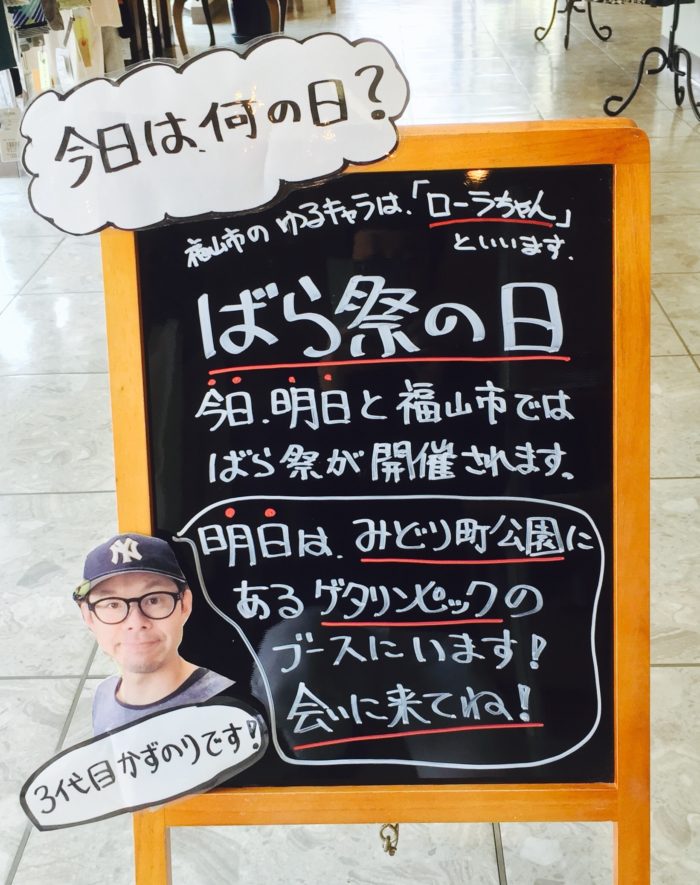 今日は、何の日?
福山市のゆるキャラは、「ローラちゃん」
といいます.
ばら祭の日
今日、明日と福山市では
ばら祭が開催されます。
明日は、みどり町公園に
あるゲタリンピックの
ブースにいます!
会いに来てね!
NY
3代目かずのりです!